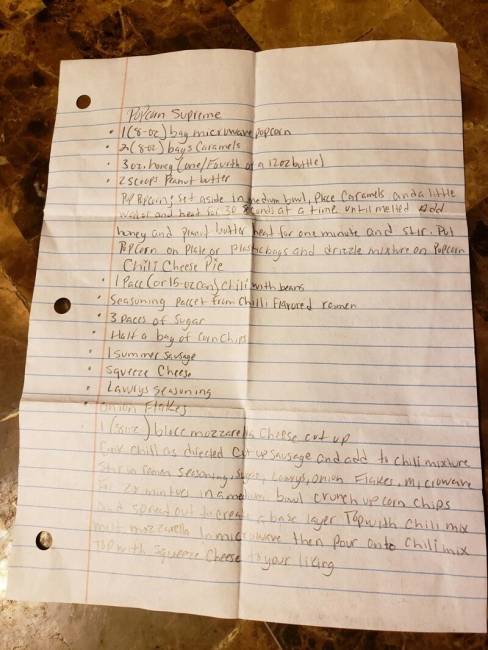 Popcorn Supreme
• 1 (8-oz) bag microwave popcorn
• 2 (8oz) bags Caramels
• 3 oz. honey (one/Fourth of a 12oz bottle)
• 2 scoops Peanut butter
Pop Popcorn; set aside in medium bowl, Place Caramels and a little
water and heat for 30 seconds at a time until melted Add
honey and peanut butter heat for one minute and stir. Put
Popcorn on Plate or Plastic bags and drizzle mixture on Popcorn
Chili Cheese Pie
• 1 Pack (or 15-oz can) chili with beans
• Seasoning packet from Chilli Flavored ramen
• 3 paces of Sugar
• Half a bag of Corn Chips
• 1 Summer Sausage
• Squeeze Cheese
• Lawrys Seasoning
• Onion Flakes
1 block mozzarella Cheese cut up
Cook chili as directed Cut up Sausage and add to chili mixture
Stir in ramen seasoning, Sugar, Lawrys, onion Flakes, microwave
for mixture in a medium bowl crunch up corn chips
and spread out to create a base layer Top with chili mix
melt mozzarella in microwave then pour onto chili mix
Top with Squeeze Cheese to your liking